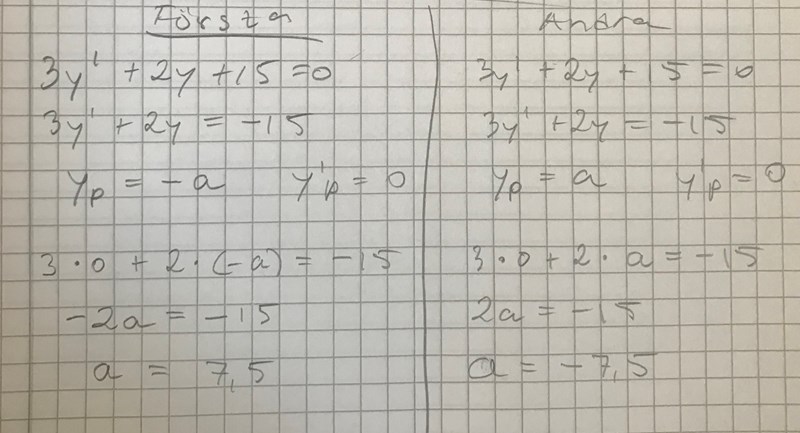 Första
3y' + 2y + 15 = 0
3y' + 2y = -15
yp = -a y'p = 0
3 · 0 + 2 · (-a) = -15
-2a = -15
a = 7,5
Andra
3y' + 2y + 15 = 0
3y' + 2y = -15
yp = a y'p = 0
3 · 0 + 2 · a = -15
2a = -15
a = -7,5